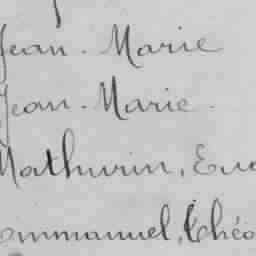 Jean-Marie
Jean-Marie
Mathurin, Eu
Emmanuel, Théo